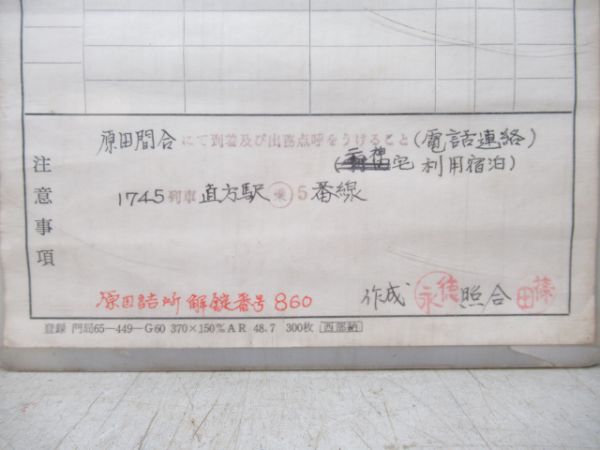 注意事項
原田間合にて到着及び出務点呼をうけること(電話連絡)
宅利用宿泊)
1745列車 直方駅 乗 5番線
原田詰所解錠番号 860
作成 永徳 照合 篠田
登録 門局65-449-G60 370×150㎜AR 48.7 300枚 西部納